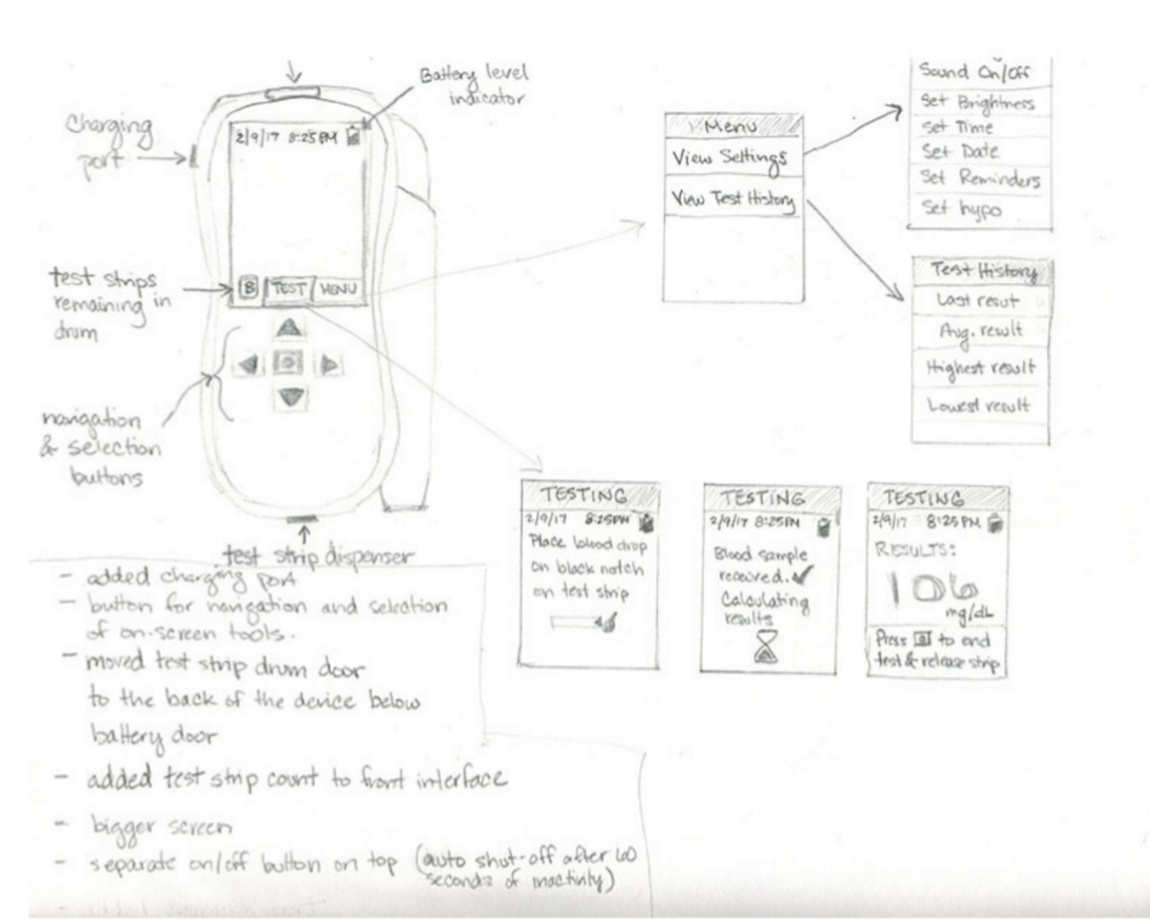 Battery level
indicator
Charging
port
2/9/17 8:25PM
test strips
remaining in
drum
8 TEST MENU
navigation
& selection
buttons
test strip dispenser
Menu
View Settings
View Test History
Sound On/Off
Set Brightness
Set Time
Set Date
Set Reminders
Set hypo
Test History
Last resut
Avg. result
Highest result
Lowest result
TESTING
2/9/17 8:25PM
Place blood drop
on black notch
on test strip
TESTING
2/9/17 8:25PM
Blood sample
received. ✓
Calculating
results
TESTING
2/9/17 8:25PM
RESULTS:
106
mg/dL
Press to end
test & release strip
- added charging port
- button for navigation and selection
of on-screen tools.
- moved test strip drum door
to the back of the device below
battery door
- added test strip count to front interface
- bigger screen
- separate on/off button on top (auto shut-off after 60
seconds of inactivity)
- added